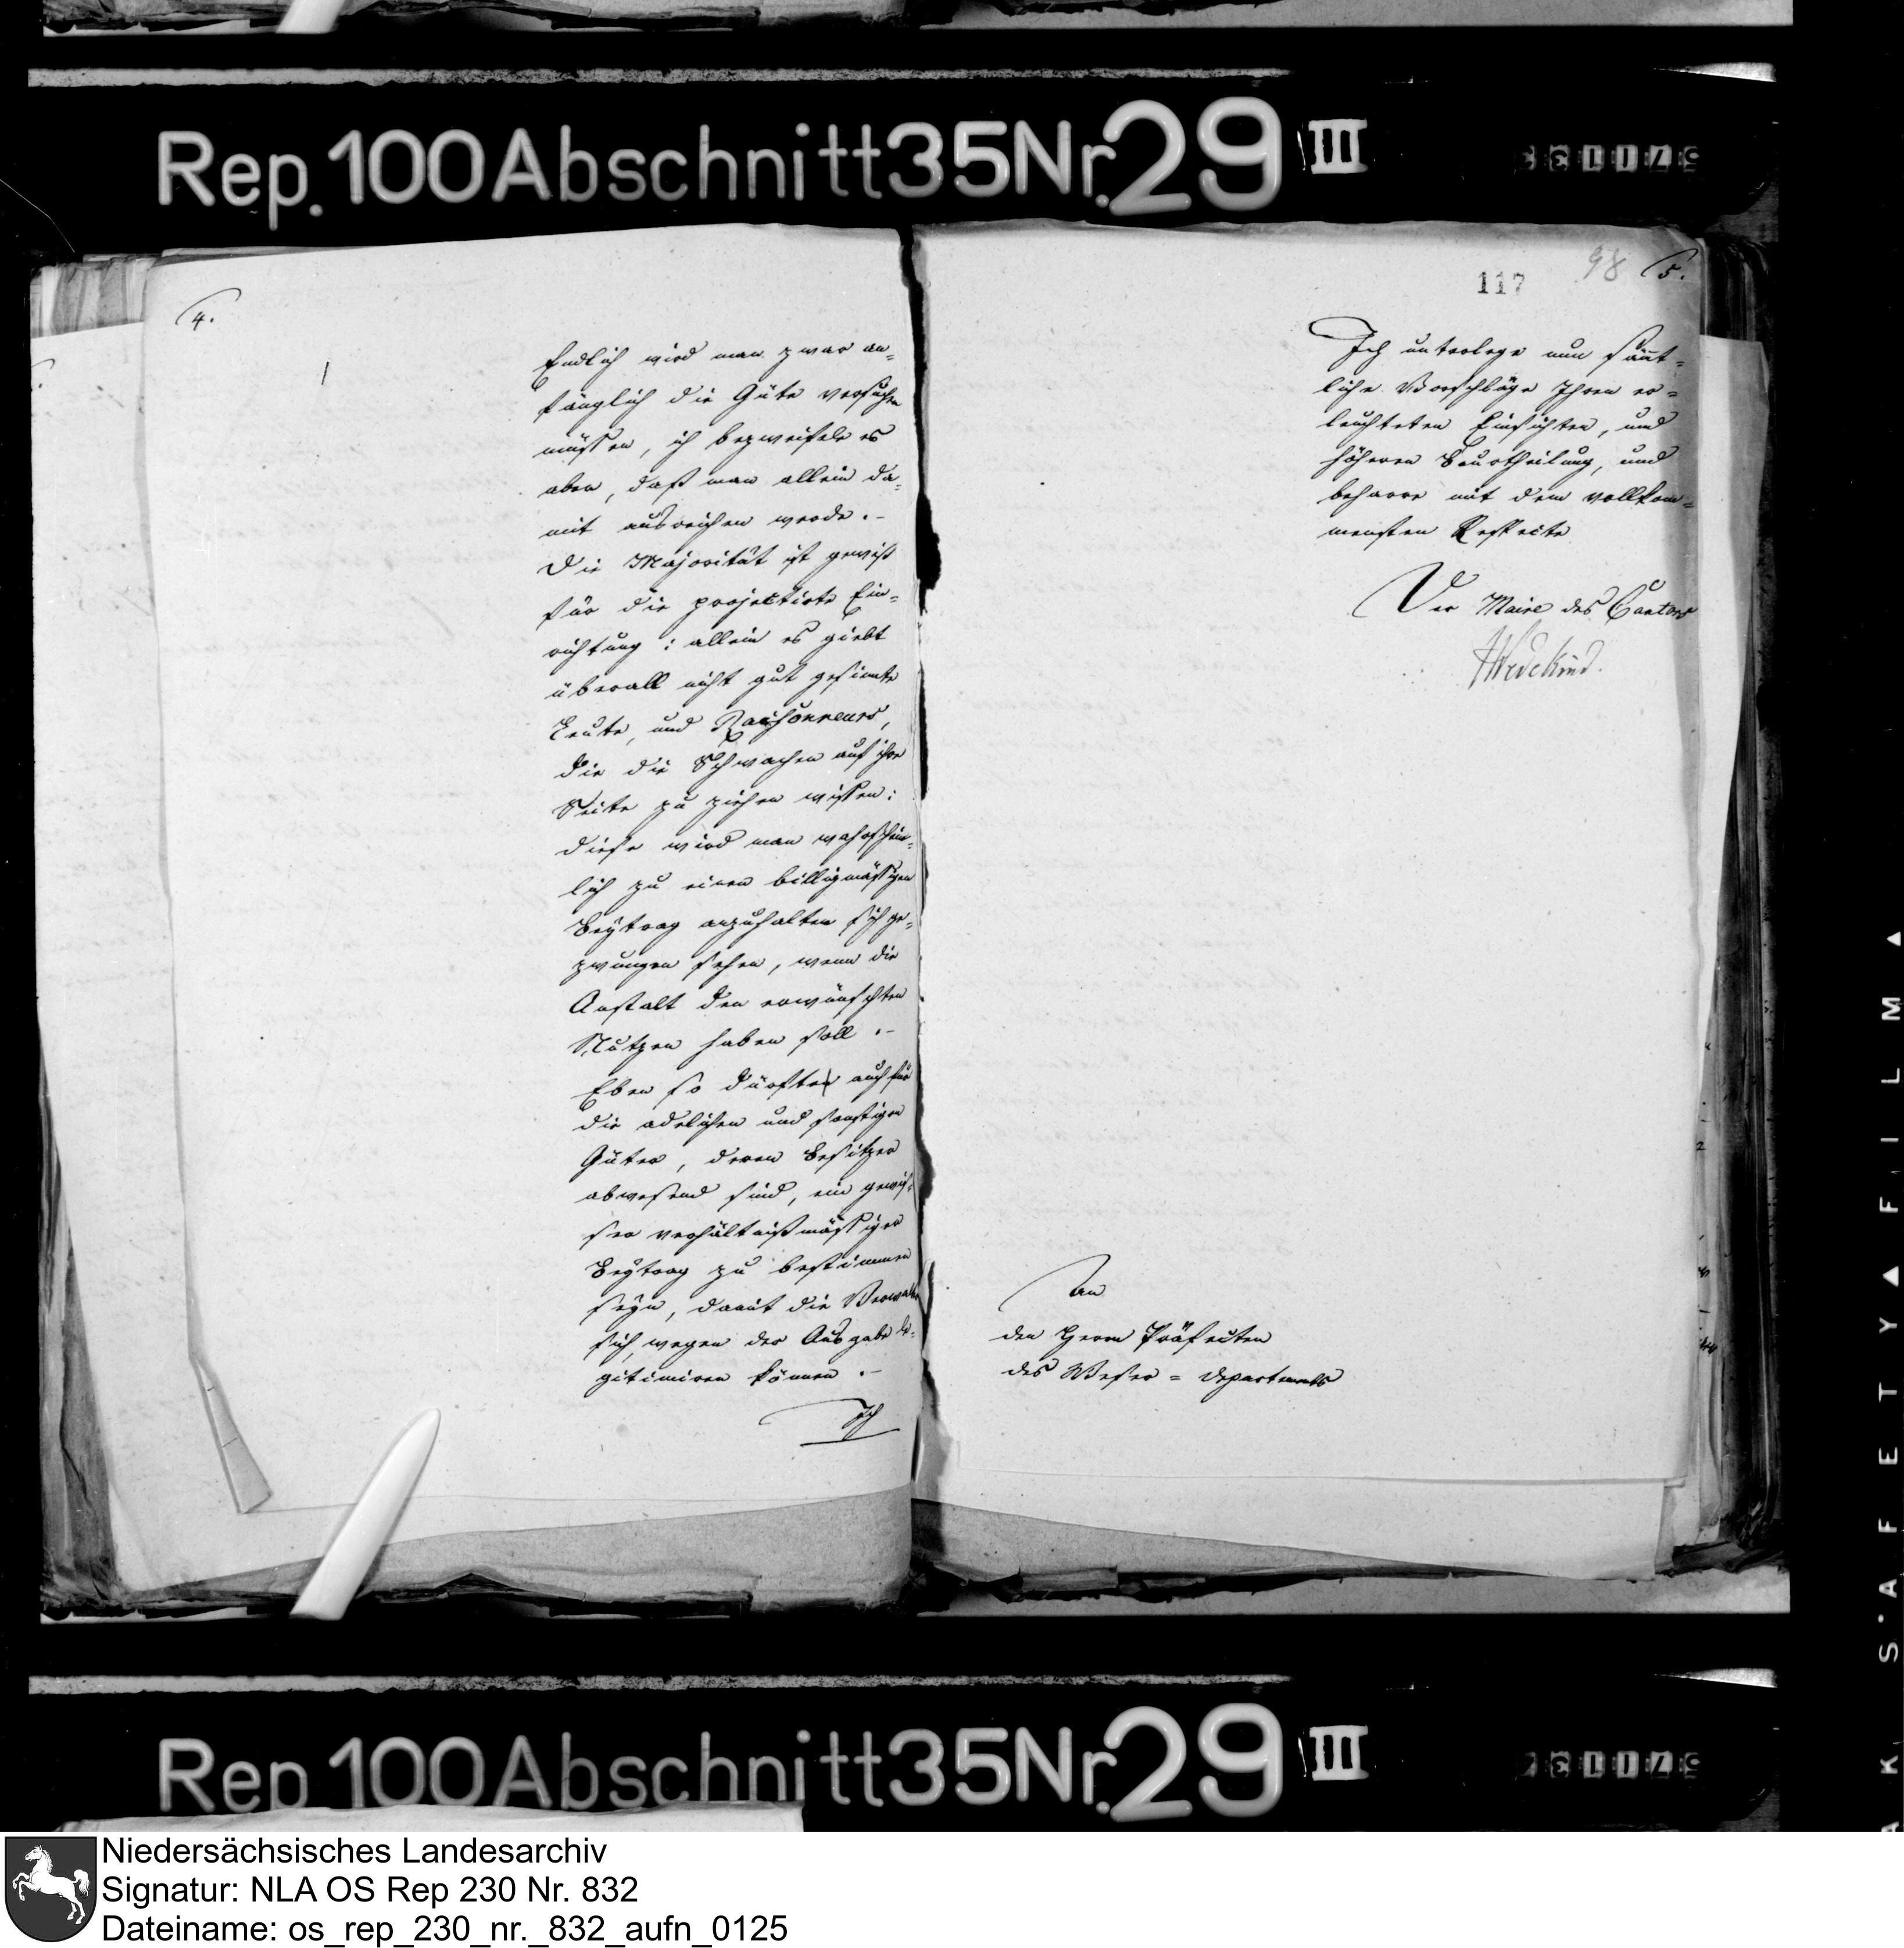 Rep. 100 Abschnitt 35 Nr. 29 III
4.
Endlich wird man zwar an-
fänglich die Güte versuchen
müssen, ich bezweifele es
aber, daß man allein da-
mit ausreichen werde.-
Die Majorität ist gewiß
für die projectirte Ein-
richtung: allein es giebt
überall nicht gut gesinnte
Leute, und Raisonneurs,
die die Schwachen auf ihre
Seite zu ziehen wissen:
diese wird man wahrschein-
lich zu einem billigmäßigen
Beytrag anzuhalten sich ge-
zwungen sehen, wenn die
Anstalt den erwünschten
Nutzen haben soll.-
Eben so dürfte auch für
die adelichen und sonstigen
Güter, deren Besitzer
abwesend sind, ein gewis-
ser verhältnißmäßiger
Beytrag zu bestimmen
seyn, damit die Verwalter
sich, wegen der Ausgabe le-
gitimiren können.-
Ich
117
98
5.
Ich unterlege nun sämt-
liche Vorschläge Ihren er-
leuchteten Einsichten, und
höheren Beurtheilung, und
beharre mit dem vollkom-
mensten Respecte
Der Maire des Cantons
Wedekind.
An
den Herrn Präfecten
des Weser-Departements
Rep 100 Abschnitt 35 Nr. 29 III
AK SAFETY FILM
Niedersächsisches Landesarchiv
Signatur: NLA OS Rep 230 Nr. 832
Dateiname: os_rep_230_nr._832_aufn_0125